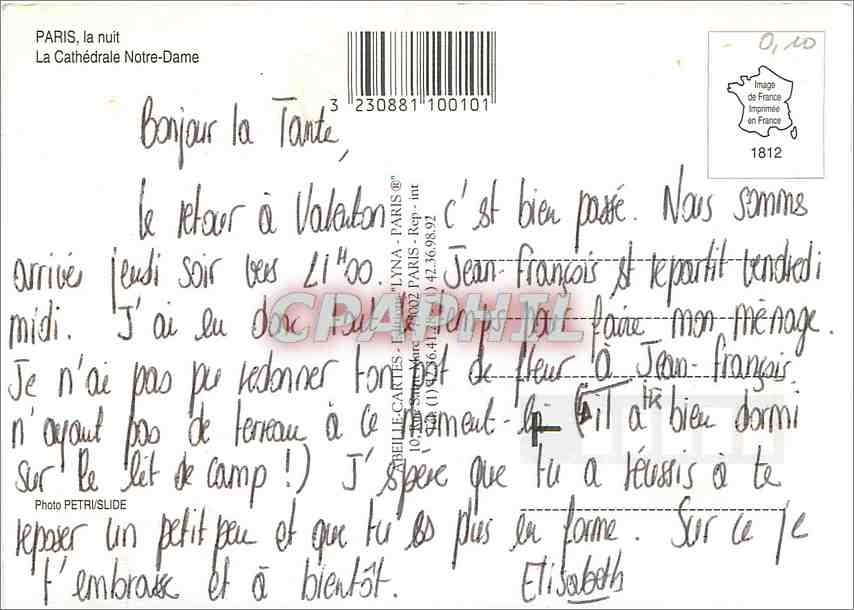 PARIS, la nuit
La Cathédrale Notre-Dame
3 230881 100101
0,10
Image
de France
Imprimée
en France
1812
Bonjour la Tante,
le retour à Valenton c'est bien passé. Nous somme
arrivés jeudi soir vers 21H00. Jean-François est repartit vendredi
midi. J'ai eu donc tout le temps pour faire mon ménage.
Je n'ai pas pu redonner ton pot de fleur à Jean-François.
n'ayant pas de terreau à ce moment-là (il a bien dormi
sur le lit de camp !) J'espère que tu a réussis à te
reposer un petit peu et que tu es plus en forme. Sur ce je
t'embrasse et à bientôt. Elisabeth
Photo PETRI/SLIDE
ABEILLE-CARTES - Editions "LYNA - PARIS ®"
75002 PARIS - Rep - int
42.36.98.92
CPAPHIL